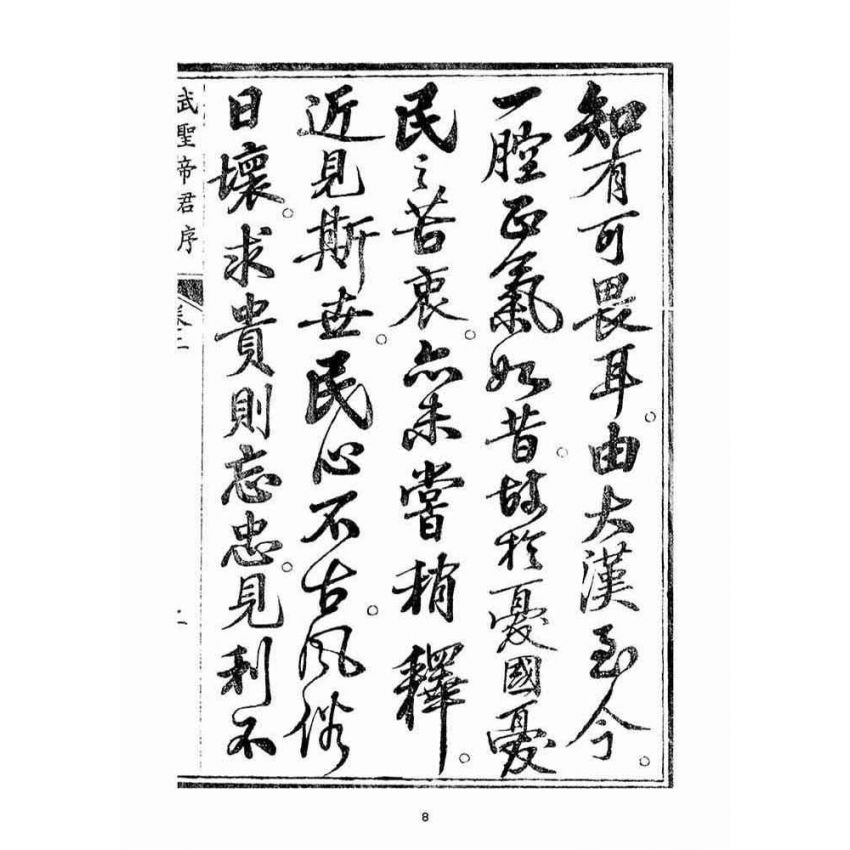 知有可畏耳。由大漢至今。
一腔正氣如昔。故於憂國憂
民之苦衷。亦未嘗稍釋。
近見斯世。民心不古。風俗
日壞。求貴則忘忠。見利不
武聖帝君序
卷二
二
8